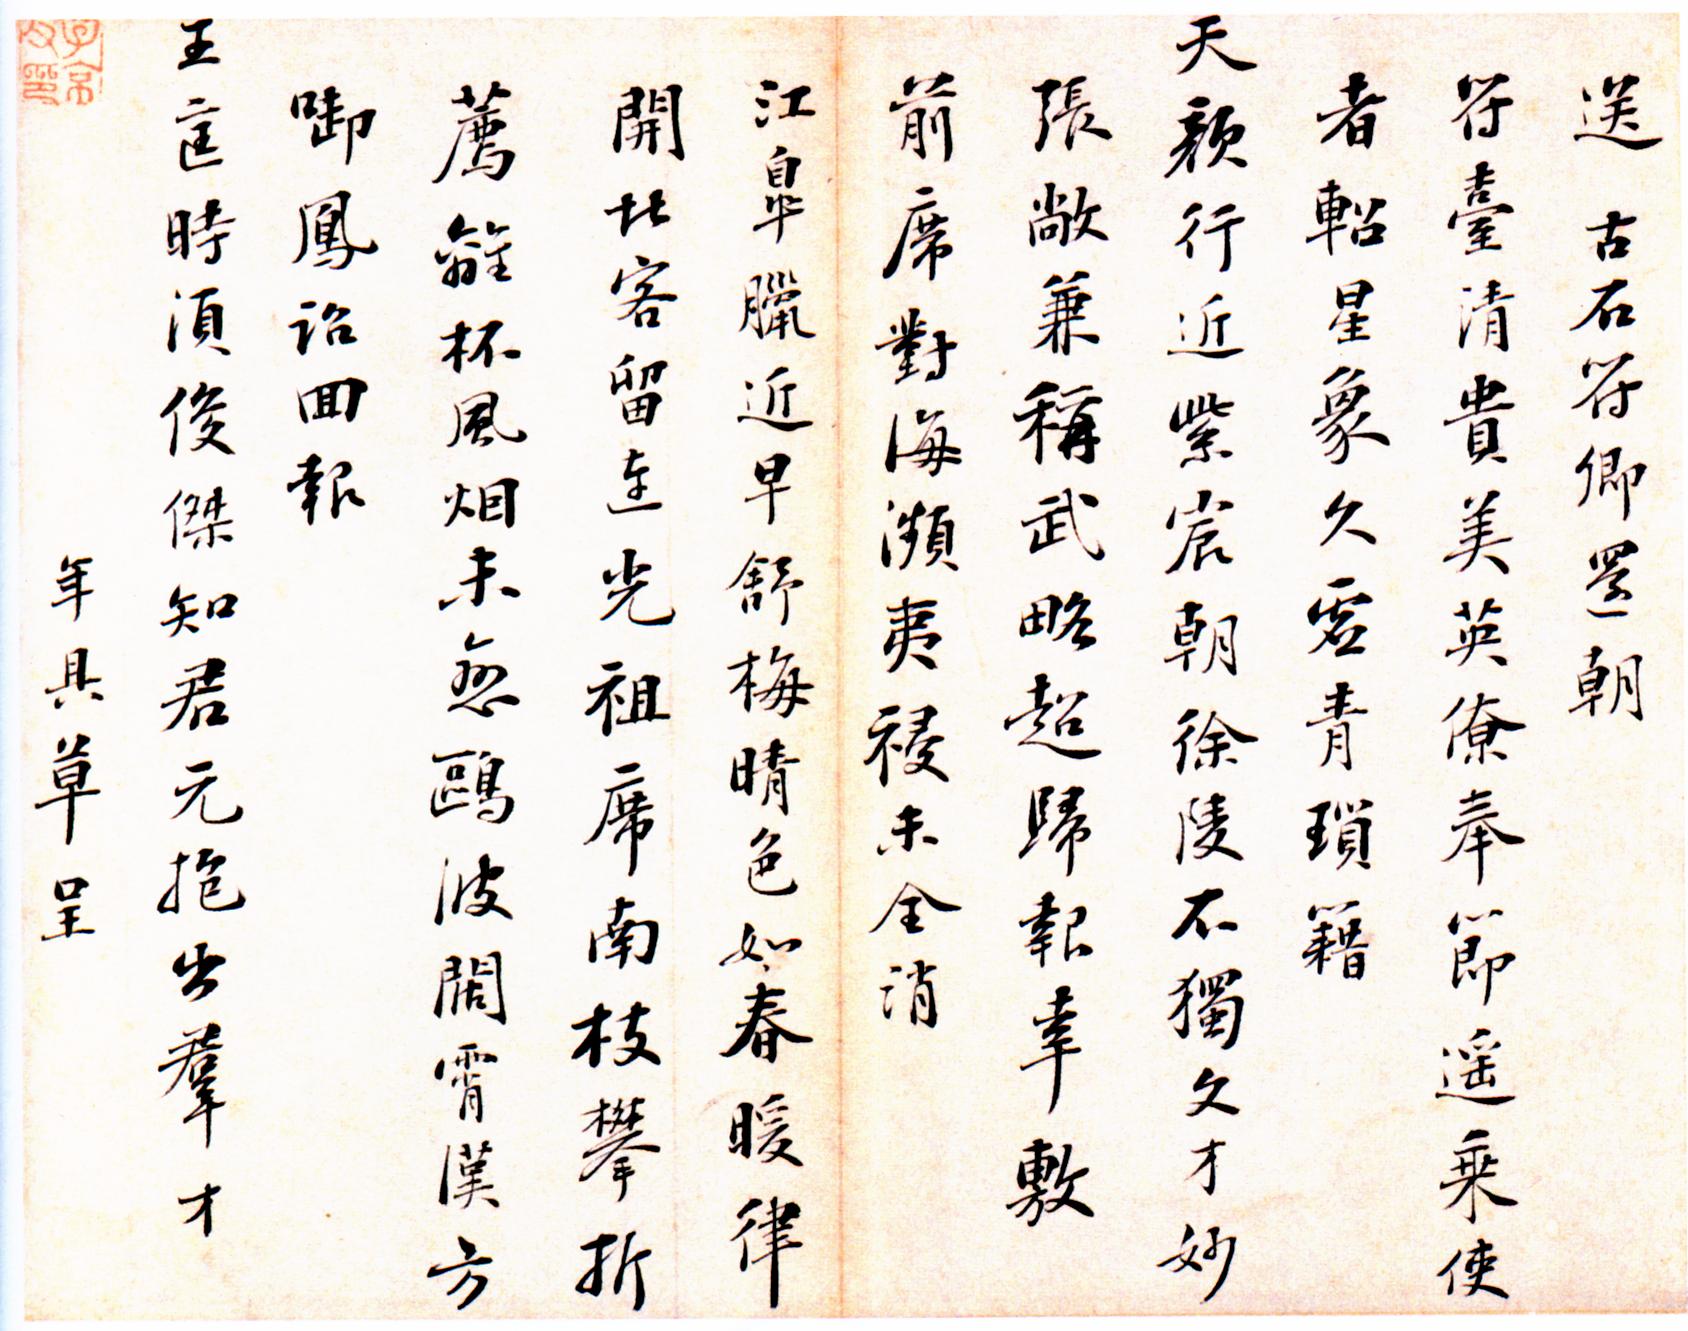 送 古石符卿還朝
符臺清貴美英僚奉節遥乘使
者軺星象久虛青瑣籍
天顏行近紫宸朝徐陵不獨文才妙
張敞兼稱武略超歸報幸敷
前席對海瀕夷祲未全消
江皐臘近早舒梅晴色如春暖律
開北客留連光祖席南枝攀折
薦離杯風烟未忽鷗波闊霄漢方
啣鳳詔回報
王匡時須俊傑知君元抱出羣才
年具草呈